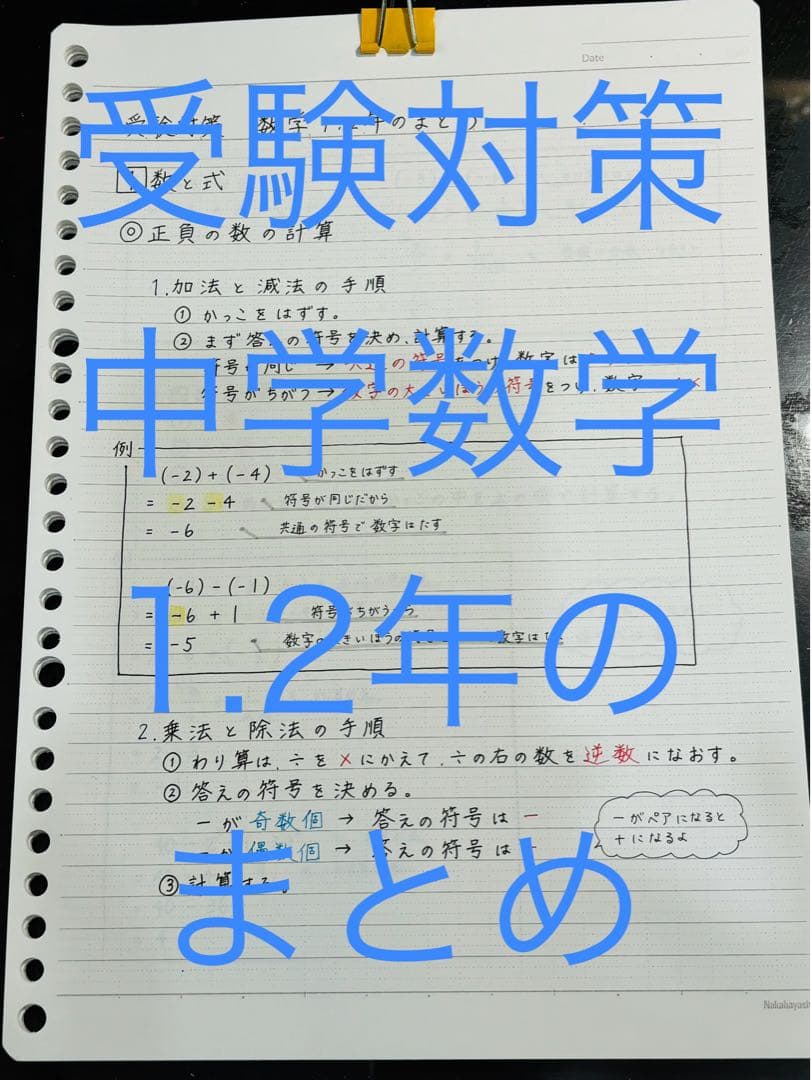 Date
受験対策
受験対策 数学 1.2年のまとめ
1 数と式
◎正負の数の計算
1.加法と減法の手順
① かっこをはずす。
② まず答えの符号を決め、計算する。
符号が同じ → 共通の符号をつけ、数字は
中学数学
符号がちがう → 数字の大きいほうの符号をつけ、数字
例
(-2)+(-4) かっこをはずす
= -2 -4 符号が同じだから
= -6 共通の符号で数字はたす
(-6)-(-1)
= -6 + 1 符号がちがうから
= -5 数字の大きいほうの
1.2年の
2.乗法と除法の手順
① わり算は、÷を×にかえて、÷の右の数を逆数になおす。
② 答えの符号を決める。
-が奇数個 → 答えの符号は -
-がペアになると
+になるよ
-が偶数個 → 答えの符号は
③ 計算する。
まとめ
Nakabayashi